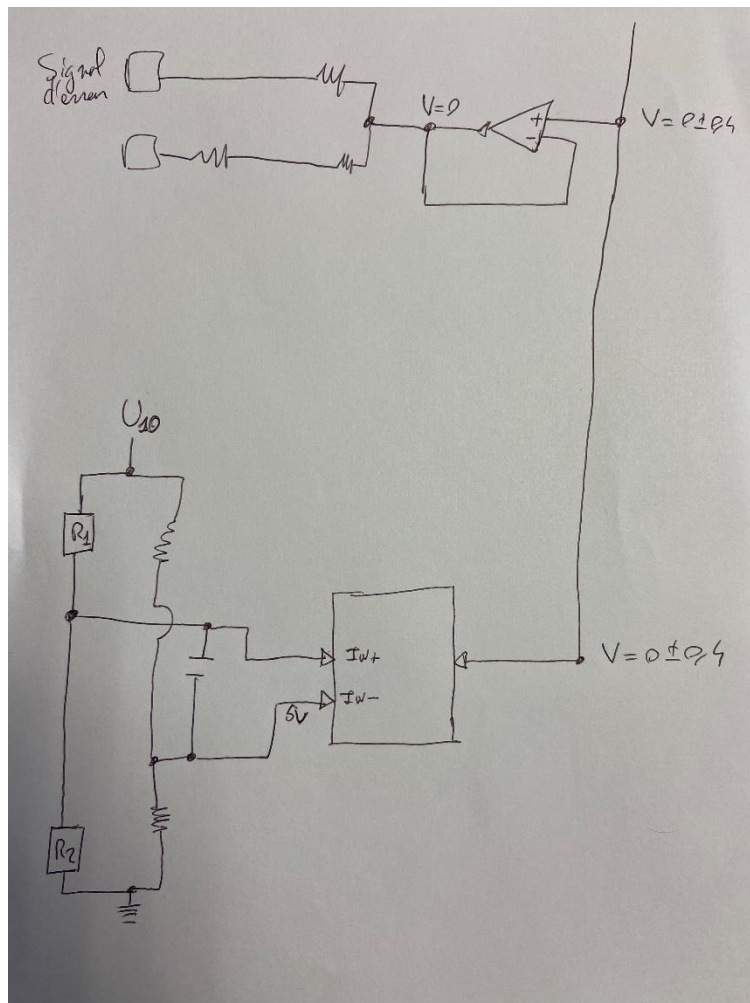 Signal
d'erreur
V=0
+
-
V= 0±0,4
U10
R1
IN+
IN-
5V
V=0±0,4
R2